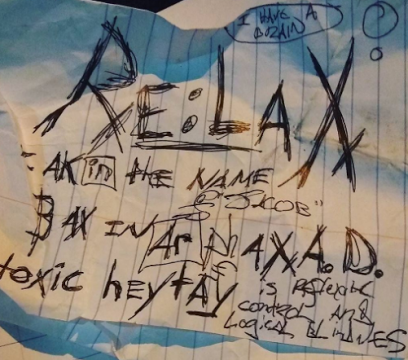 I HAVE A
BRAIN
?
RE:LAX
AK in the NAME
"JACOB"
BAX IN Ar AXA.D.
toxic heytAy
is Reflexive
control AND
LOGICAL